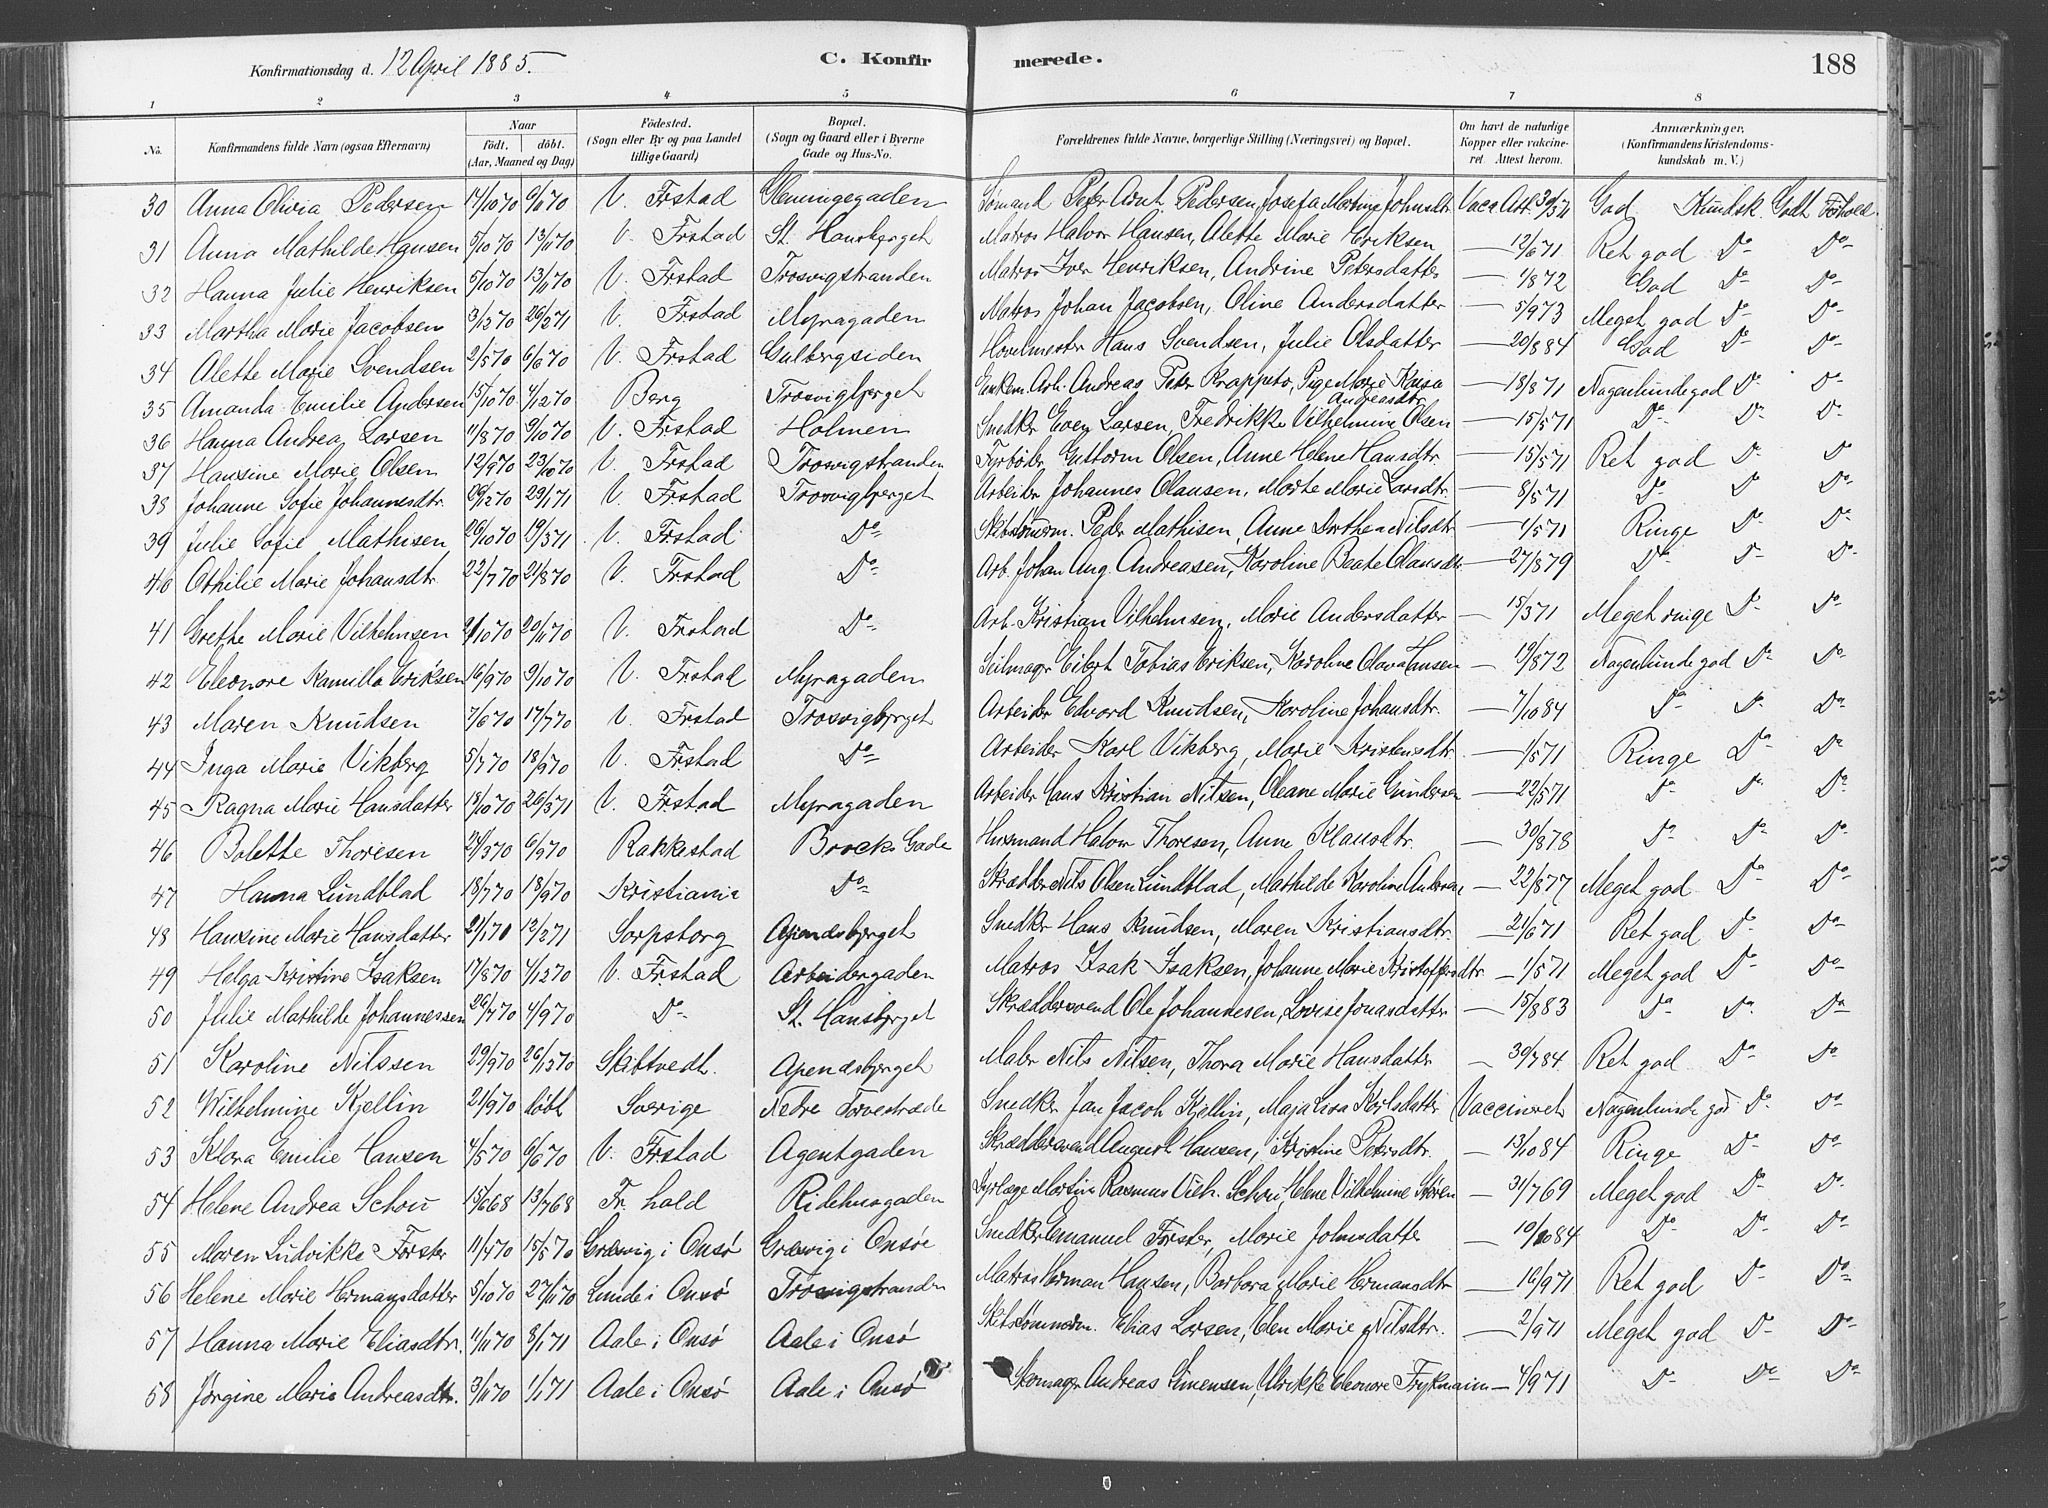 Konfirmationsdag d. 12 April 1885. C. Konfirmerede. 188
1 2 3 4 5 6 7 8
No. Konfirmandens fulde Navn (ogsaa Efternavn) Naar födt. döbt. (Aar, Maaned og Dag) Födested. (Sogn eller By og paa Landet tillige Gaard) Bopæl. (Sogn og Gaard eller i Byerne Gade og Hus-No. Forældrenes fulde Navne, borgerlige Stilling (Næringsvei) og Bopæl. Om havt de naturlige Kopper eller vaccineret Attest herom. Anmærkninger. (Konfirmandens Kristendomskundskab m. V.)
30 Anna Olivia Pedersen 14/10 70 9/11 70 V. Frstad Glemmegegaden Sömand Peter Arnt Pedersen, Josefa Martine Johnsdtr Vacc Att. God Kundsk. Godt Forhold.
31 Anna Mathilde Hansen 5/10 70 13/11 70 V. Frstad St. Hansbjerget Matros Halvor Hansen, Alette Marie Eriksen — 12/6 71 Ret god Do Do
32 Hanna Julie Henriksen 5/10 70 13/11 70 V. Frstad Trosvigstranden Matros Iver Henriksen, Andrine Petersdatter — 1/8 72 God Do Do
33 Martha Marie Jacobsen 3/3 70 26/2 71 V. Frstad Myragaden Matros Johan Jacobsen, Oline Andersdatter — 5/9 73 Meget god Do Do
34 Alette Marie Svendsen 2/5 70 6/6 70 V. Frstad Gulbergsiden Hovelmester Hans Svendsen, Julie Olsdatter — 20/8 84 God Do Do
35 Amanda Emilie Andersen 15/10 70 4/12 70 Berg Trosvigbjerget Enkem. Arb. Andreas Peter Krappeto, Pige Marie Kaisa Andreasdtr — 18/8 71 Nogenlunde god Do Do
36 Hanna Andrea Larsen 11/8 70 9/10 70 V. Frstad Holmen Snedker Even Larsen, Fredrikke Vilhelmine Olsen — 15/5 71 Do Do Do
37 Hansine Marie Olsen 12/9 70 23/10 70 V. Frstad Trosvigstranden Fyrböder Guttorm Olsen, Anne Helene Hansdtr. — 15/5 71 Ret god Do Do
38 Johanne Sofie Johannesdtr. 26/2 70 29/1 71 V. Frstad Trosvigbjerget Arbeider Johannes Olausen, Marte Marie Larsdtr. — 8/5 71 Do Do Do
39 Julie Sofie Mathisen 26/10 70 19/3 71 V. Frstad Do Skibstömrm. Peder Mathisen, Anne Dorthea Nilsdtr — 1/5 71 Ringe Do Do
40 Othilie Marie Johansdtr 22/7 70 21/8 70 V. Frstad Do Arb. Johan Aug. Andreasen, Karoline Beate Olausdtr — 27/8 79 Do Do Do
41 Grethe Marie Vilhelmsen 21/10 70 20/11 70 V. Frstad Do Arb. Kristian Vilhelmsen, Marie Andersdatter — 15/3 71 Meget ringe Do Do
42 Eleonore Kamilla Eriksen 16/9 70 9/10 70 V. Frstad Myragaden Seilmagr Eilert Tobias Eriksen, Karoline Olava Hansen — 19/8 72 Nogenlunde god Do Do
43 Maren Knudsen 7/6 70 17/7 70 V. Frstad Trosvigbjerget Arbeider Edvard Knudsen, Karoline Johansdtr. — 7/10 84 Do Do Do
44 Inga Marie Vikberg 5/7 70 18/9 70 V. Frstad Do Arbeider Karl Vikberg, Marie Kristensdtr. — 1/5 71 Ringe Do Do
45 Ragna Marie Hansdatter 18/10 70 26/3 71 V. Frstad Myragaden Arbeider Hans Kristian Nilsen, Oleane Marie Gundersen — 22/5 71 Do Do Do
46 Bolette Thoresen 21/3 70 6/9 70 Rakkestad Brocks Gade Husmand Halvor Thoresen, Anne Klausdtr. — 30/8 78 Do Do Do
47 Hanna Lundblad 18/7 70 18/9 70 Kristiania Do Skrædder Nils Olsen Lundblad, Mathilde Karoline Andersen — 22/8 77 Meget god Do Do
48 Hansine Marie Hansdatter 21/1 71 12/2 71 Sarpsborg Apendsbjerget Snedker Hans Knudsen, Maren Kristiansdtr. — 21/6 71 Ret god Do Do
49 Helga Kristine Isaksen 17/8 70 4/12 70 V. Frstad Arbeidergaden Matros Isak Isaksen, Johanne Marie Kristoffersdtr — 1/5 71 Meget god Do Do
50 Julie Mathilde Johannessen 26/7 70 4/9 70 Do St. Hansbjerget Skræddersvend Ole Johannesen, Lovise Jonasdatter — 15/8 83 Do Do Do
51 Karoline Nilssen 29/9 70 26/13 70 Skibtvedt. Apendsbjerget Maler Nils Nilsen, Thora Marie Hansdatter — 30/7 84 Ret god Do Do
52 Wilhelmine Kjellin 21/9 70 döbt Sverige Nedre Torvestræde Snedker Jan Jacob Kjellin, Maja Lisa Karlsdatter Vaccineret Nogenlunde god Do Do
53 Klara Emilie Hansen 4/5 70 6/6 70 V. Frstad Agentgaden Skræddersvend August Hansen, Kristine Petersdtr. — 13/10 84 Ringe Do Do
54 Helene Andrea Schou 15/6 68 13/7 68 Fr. hald Ridehusgaden Dyrlæge Martin Rasmus Vilh. Schou, Helene Vilhelmine Sören — 31/7 69 Meget god Do Do
55 Maren Ludvikke Forster 11/4 70 15/5 70 Græsvig i Onsö Græsvig i Onsöe Snedker Emanuel Forster, Marie Johnsdatter — 10/10 84 Do Do Do
56 Helene Marie Hermansdatter 5/10 70 27/11 70 Lunde i Onsö Trosvigstranden Matros Herman Hansen, Barbara Marie Hermansdtr — 16/9 71 Ret god Do Do
57 Hanna Marie Eliasdtr. 11/11 70 8/1 71 Aale i Onsö Aale i Onsö Skibstömmerm. Elias Larsen, Elen Marie Nilsdtr. — 2/9 71 Meget god Do Do
58 Jörgine Marie Andreasdtr. 3/11 70 1/1 71 Aale i Onsö Aale i Onsö Skomagr Andreas Simensen, Ulrikke Eleonore Frykmann — 4/9 71 Do Do Do